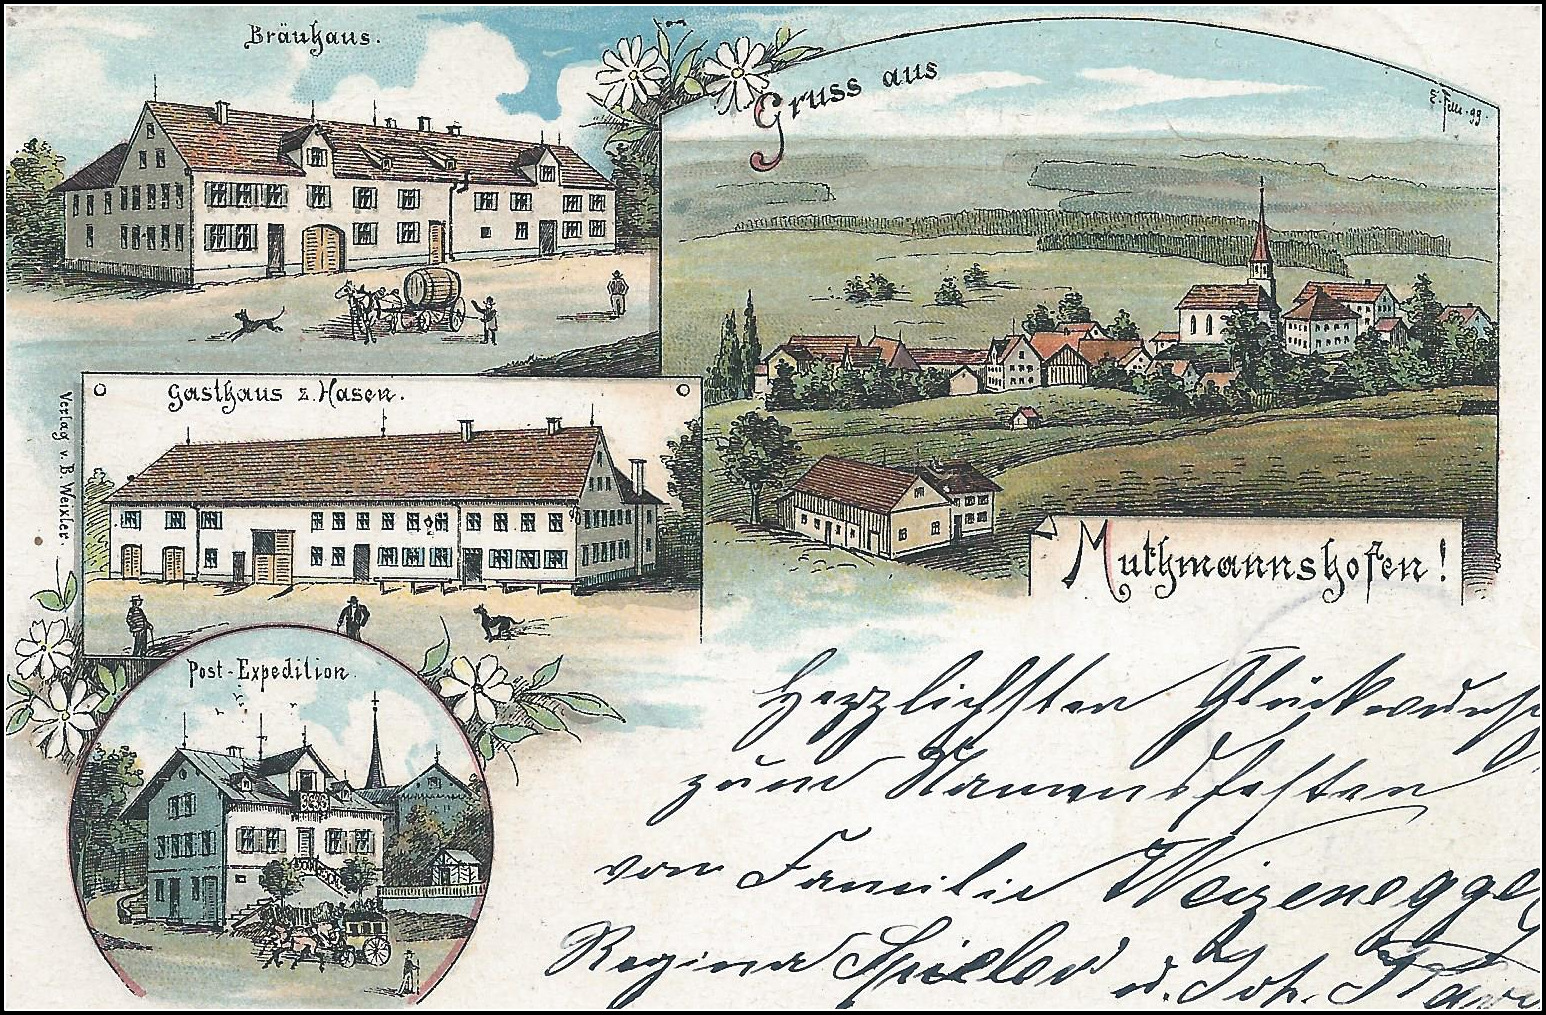 Bräuhaus.
Gruss aus
Gasthaus z. Hasen.
Verlag v. B. Weixler.
Muthmannshofen!
Post-Expedition.
Herzlichsten Glückwunsch
zum Namensfesten
von Familie Weizenegger
Regina
u. Joh.